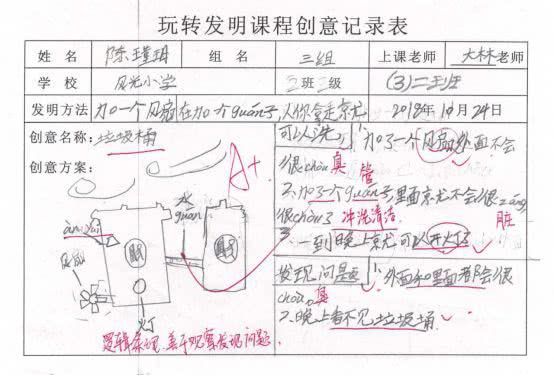 玩转发明课程创意记录表
姓 名 陈瑾玥 组 名 三组 上课老师 大林老师
学 校 风光小学 2班2级 (3)二班
发明方法 加一个风扇在加一个guǎn子,从你拿走京尤 2018年10月24日
创意名称:垃圾桶
创意方案:
A+
可以洗 1、加了一个风扇外面不会
很chòu 臭 管
2、加了个guǎn子,里面京尤不会很zāng,
很chòu了 冲洗清洁 脏
3 一到晚上京尤可以开灯了
水
guǎn
àn niǔ
风扇
火丁
发现问是 1、外面和里面都会很
chòu。臭
2、晚上看不见垃圾桶
逻辑条理,善于观察发现问题.